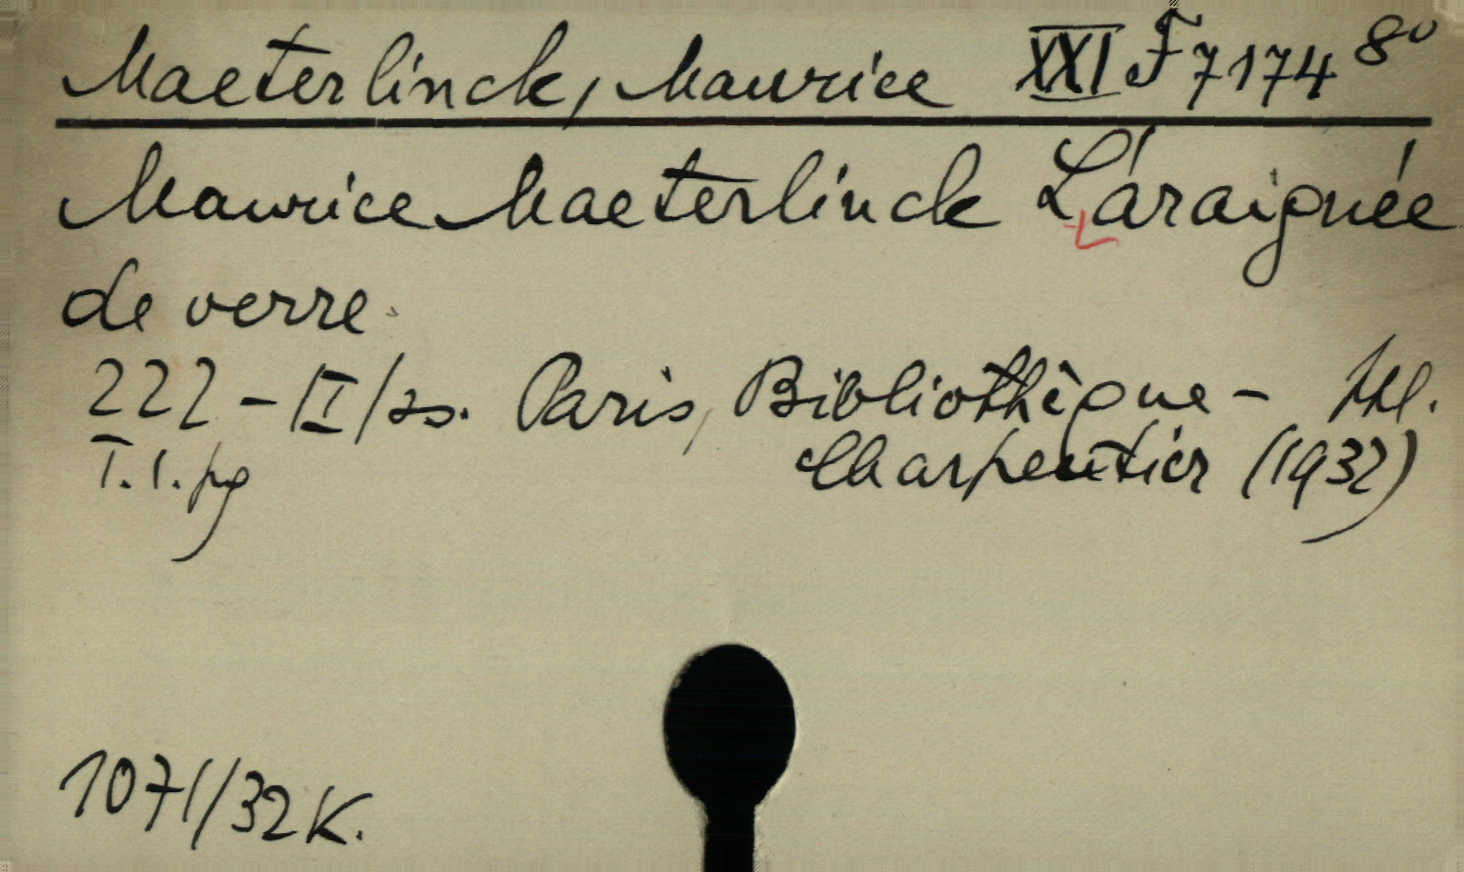 Maeterlinck, Maurice XXI F 7174 8°
Maurice Maeterlinck L'araignée
de verre
222 - II/ss. Paris, Bibliothèque -
T. 1. pg Charpentier (1932)
1071/32 K.